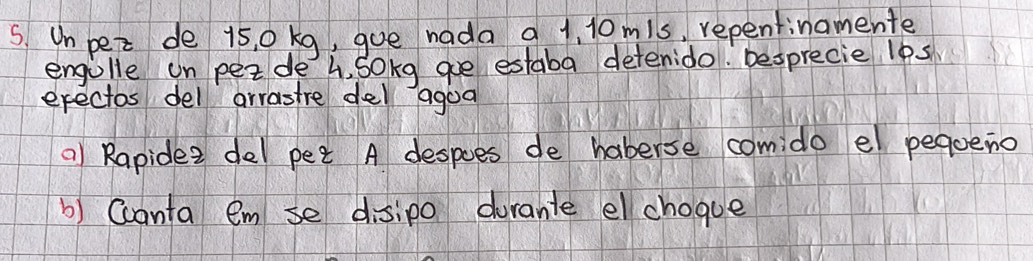 5. Un pez de 15,0 kg, que nada a 1,10 m/s, repentinamente
engulle un pez de 4,50kg que estaba detenido. Desprecie los
efectos del arrastre del agua
a) Rapidez del pez A despues de haberse comido el pequeño
b) Cuanta Em se disipo durante el choque